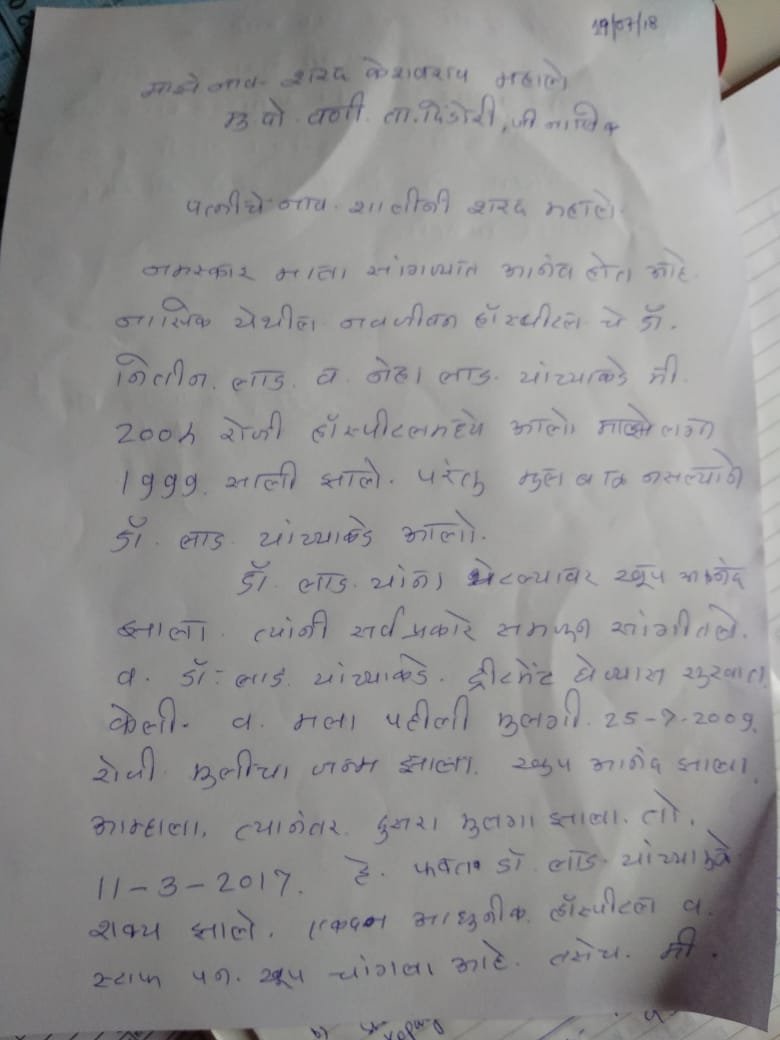 19/07/18
माझे नाव. शरद केशवराव महाले
मु.पो. वणी. ता. दिंडोरी, जी नाशिक
पत्नीचे नाव. शालीनी शरद महाले.
नमस्कार माला सांगण्यात आनंद होत आहे.
नासिक येथील नवजीवन हॉस्पीटल चे डॉ.
नितीन. लाड. व. नेहा लाड. यांच्याकडे मी.
रोजी हॉस्पीटलमध्ये आलो माझे लग्न
1999. साली झाले. परंतु मुल बाळ नसल्याने
डॉ. लाड. यांच्याकडे आलो.
डॉ. लाड. यांना भेटल्यावर खूप आनंद
झाला. त्यांनी सर्व प्रकारे समजून सांगीतले.
व. डॉ. लाड. यांच्याकडे. ट्रीटमेंट घेण्यास सुरवात
केली. व. मला पहीली मुलगी. 25-7-2009.
रोजी. मुलीचा जन्म झाला. खूप आनंद झाला.
आम्हाला. त्यानंतर. दुसरा मुलगा झाला. तो.
11-3-2017. हे. फक्त डॉ. लाड. यांच्यामुळे
शक्य झाले. एकदम आधुनीक. हॉस्पीटल व.
स्टाफ पन. खूप चांगला आहे. तसेच. मी.